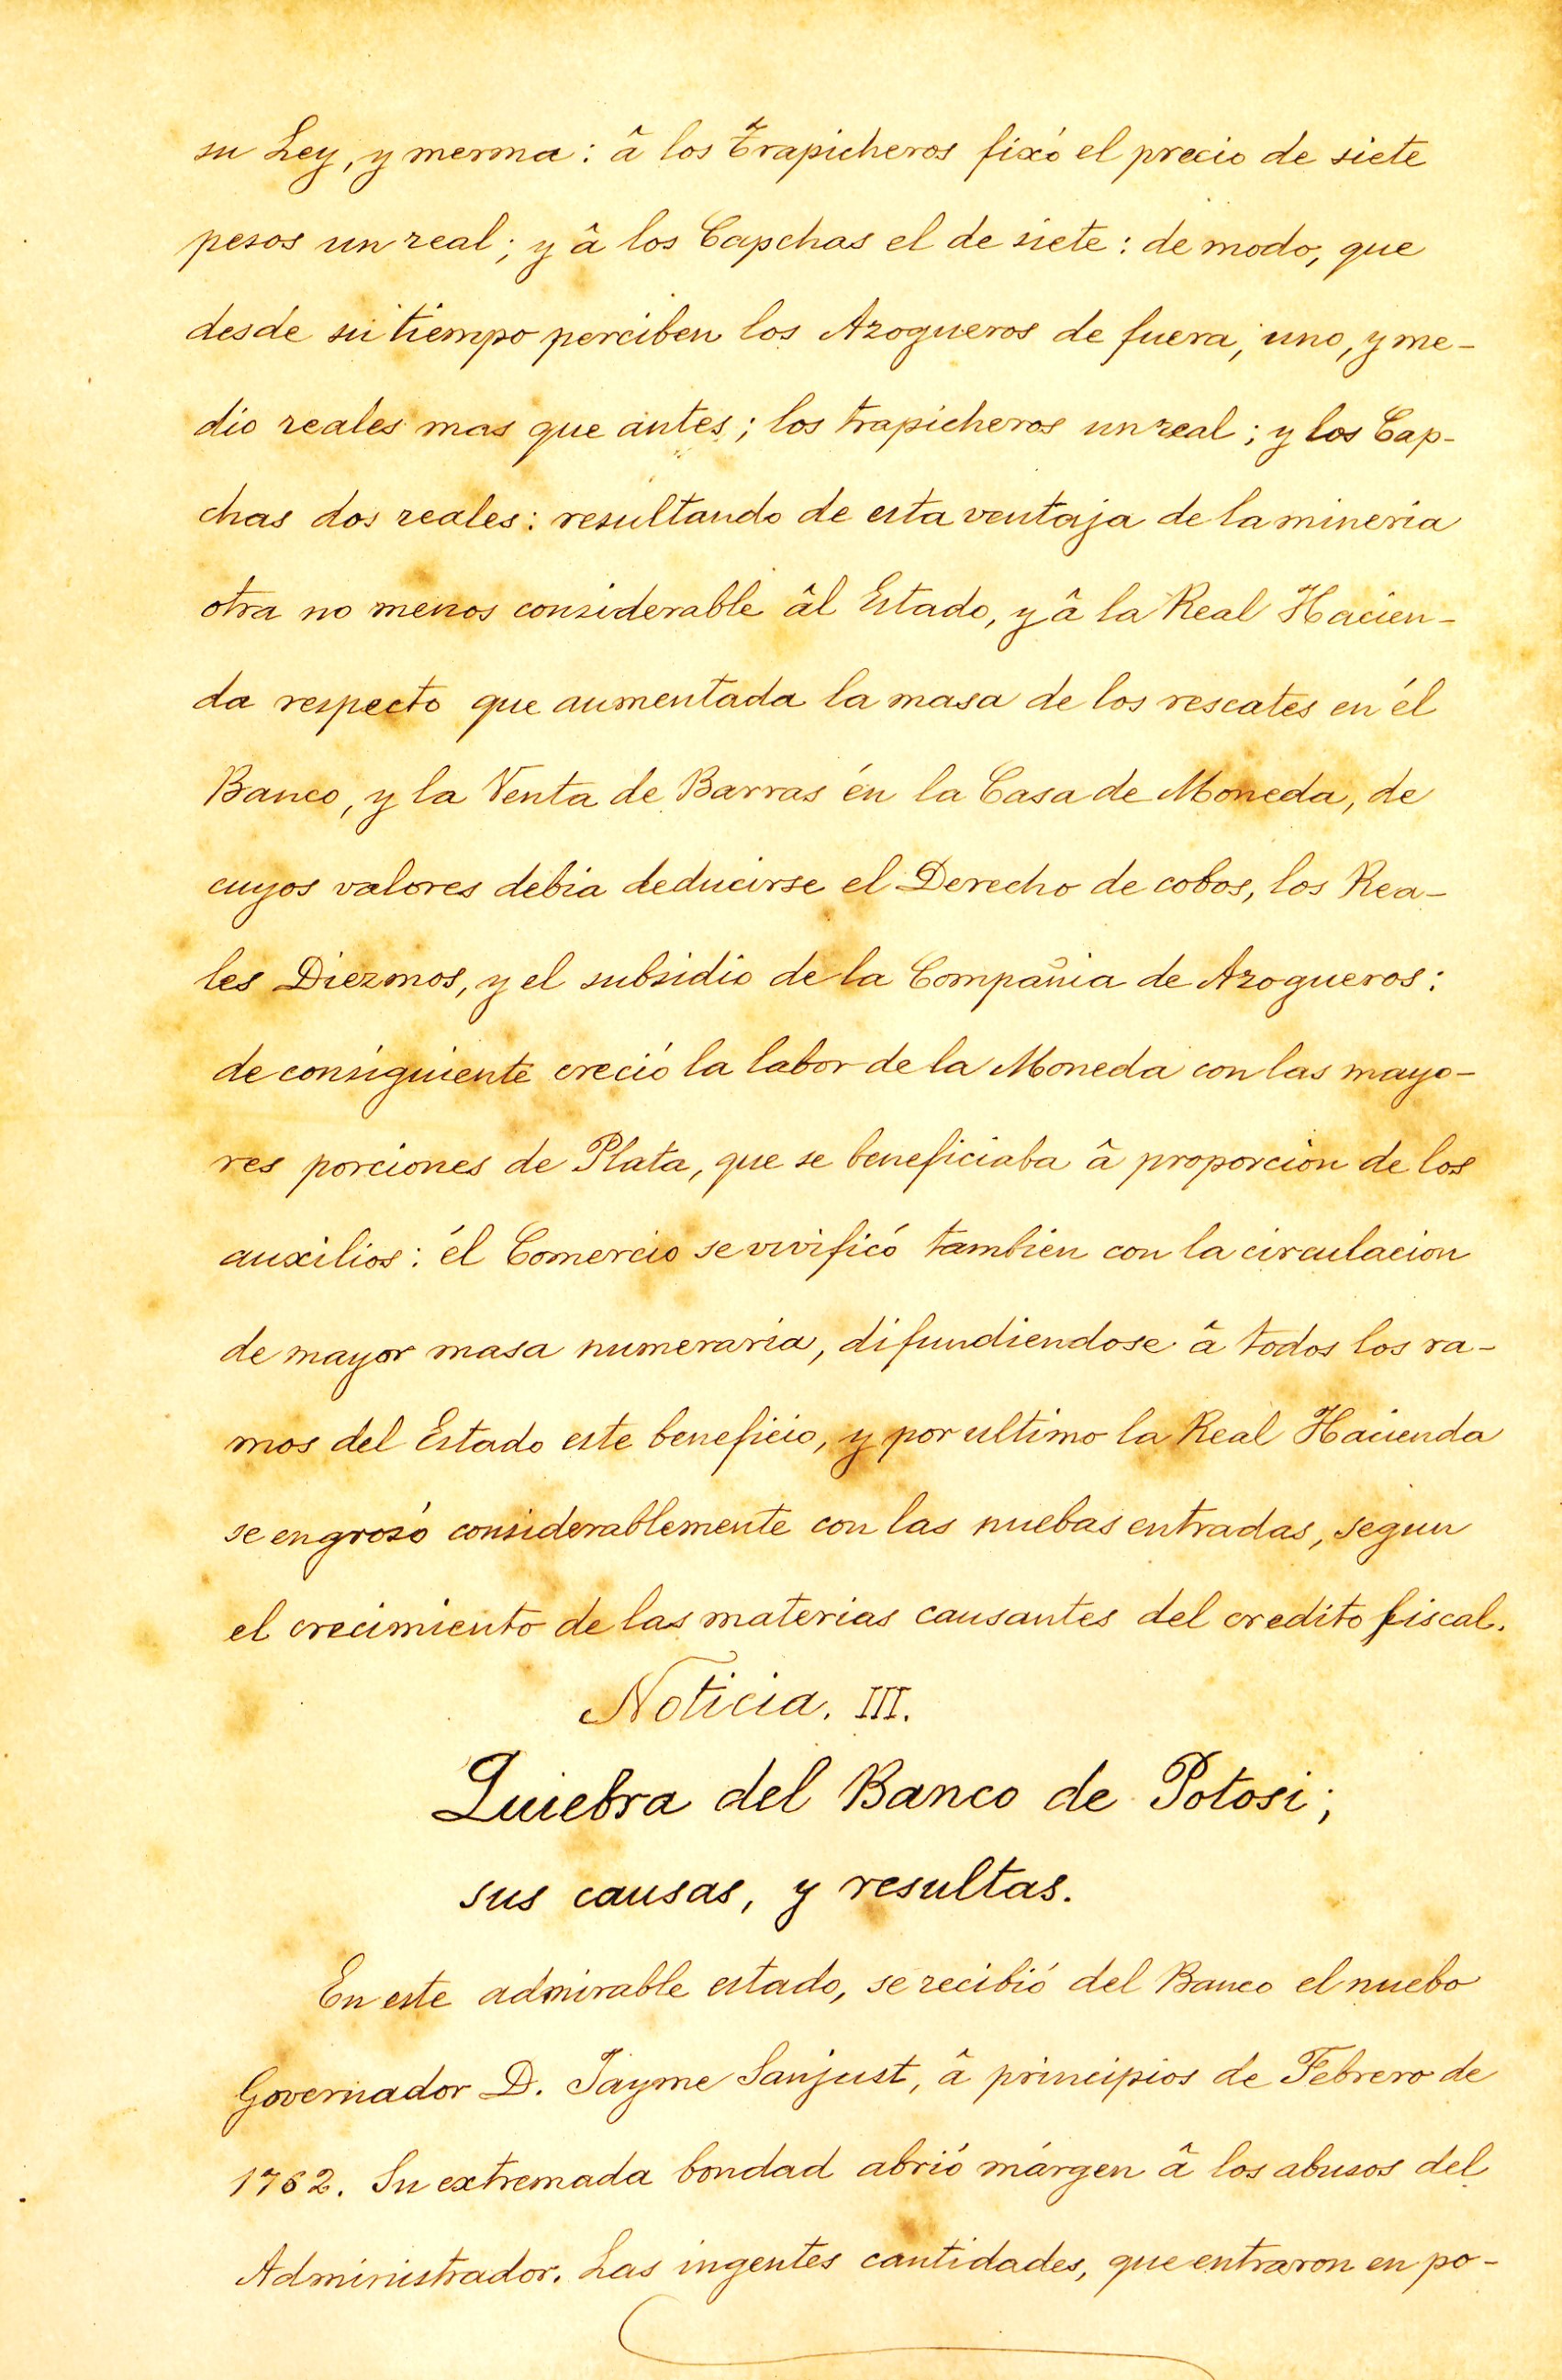 su Ley, y merma: â los Trapicheros fixó el precio de siete
pesos un real; y â los Capchas el de siete: de modo, que
desde su tiempo perciben los Azogueros de fuera, uno, y me-
dio reales mas que antes; los trapicheros un real; y los Cap-
chas dos reales: resultando de esta ventaja de la mineria
otra no menos considerable âl Estado, y â la Real Hacien-
da respecto que aumentada la masa de los rescates en él
Banco, y la Venta de Barras én la Casa de Moneda, de
cuyos valores debia deducirse el Derecho de cobos, los Rea-
les Diezmos, y el subsidio de la Compañia de Azogueros:
de consiguiente creció la labor de la Moneda con las mayo-
res porciones de Plata, que se beneficiaba â proporcion de los
auxilios: él Comercio se vivificó tambien con la circulacion
de mayor masa numeraria, difundiendose â todos los ra-
mos del Estado este beneficio, y por ultimo la Real Hacienda
se engrosó considerablemente con las nuebas entradas, segun
el crecimiento de las materias causantes del credito fiscal.
Noticia. III.
Quiebra del Banco de Potosi;
sus causas, y resultas.
En este admirable estado, se recibió del Banco el nuebo
Governador D. Jayme Sanjust, â principios de Febrero de
1762. Su extremada bondad abrió márgen â los abusos del
Administrador. Las ingentes cantidades, que entraron en po-